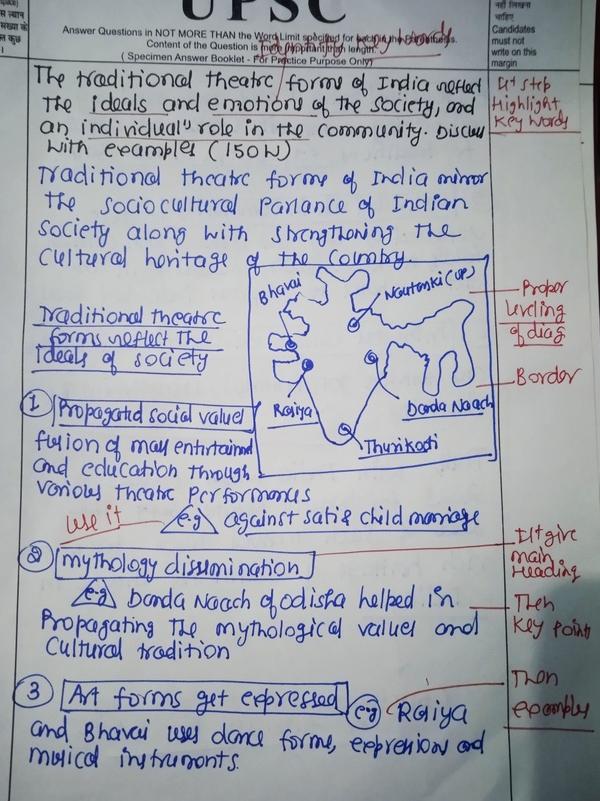 UPSC
Answer Questions in NOT MORE THAN the Word Limit specified for
Content of the Question is
( Specimen Answer Booklet - For Practice Purpose Only)
key words
नहीं लिखना
चाहिए
Candidates
must not
write on this
margin
The traditional theatre forms of India reflect
the ideals and emotions of the society, and
an individual's role in the community. Discuss
with examples (150W)
1st step
Highlight
Key words
Traditional theatre forms of India mirror
the sociocultural Parlance of Indian
Society along with strengthening the
Cultural heritage of the Country.
Traditional theatre
forms reflect the
ideals of society
Bhavai
Nautanki (UP)
Rasiya
Danda Naach
Proper
of diag
Border
1 Propagated social values
fusion of mass entertained
and education through
various theatre Performances
use it
e.g against sati & child marriage
2 mythology dissimination
1st give
main
Heading
e.g Danda Naach of odisha helped in
Propagating the mythological values and
Cultural tradition
Then
Key Points
3 Art forms get expressed e.g Rasiya
and Bhavai uses dance forms, expressions and
musical instruments.
Then
examples